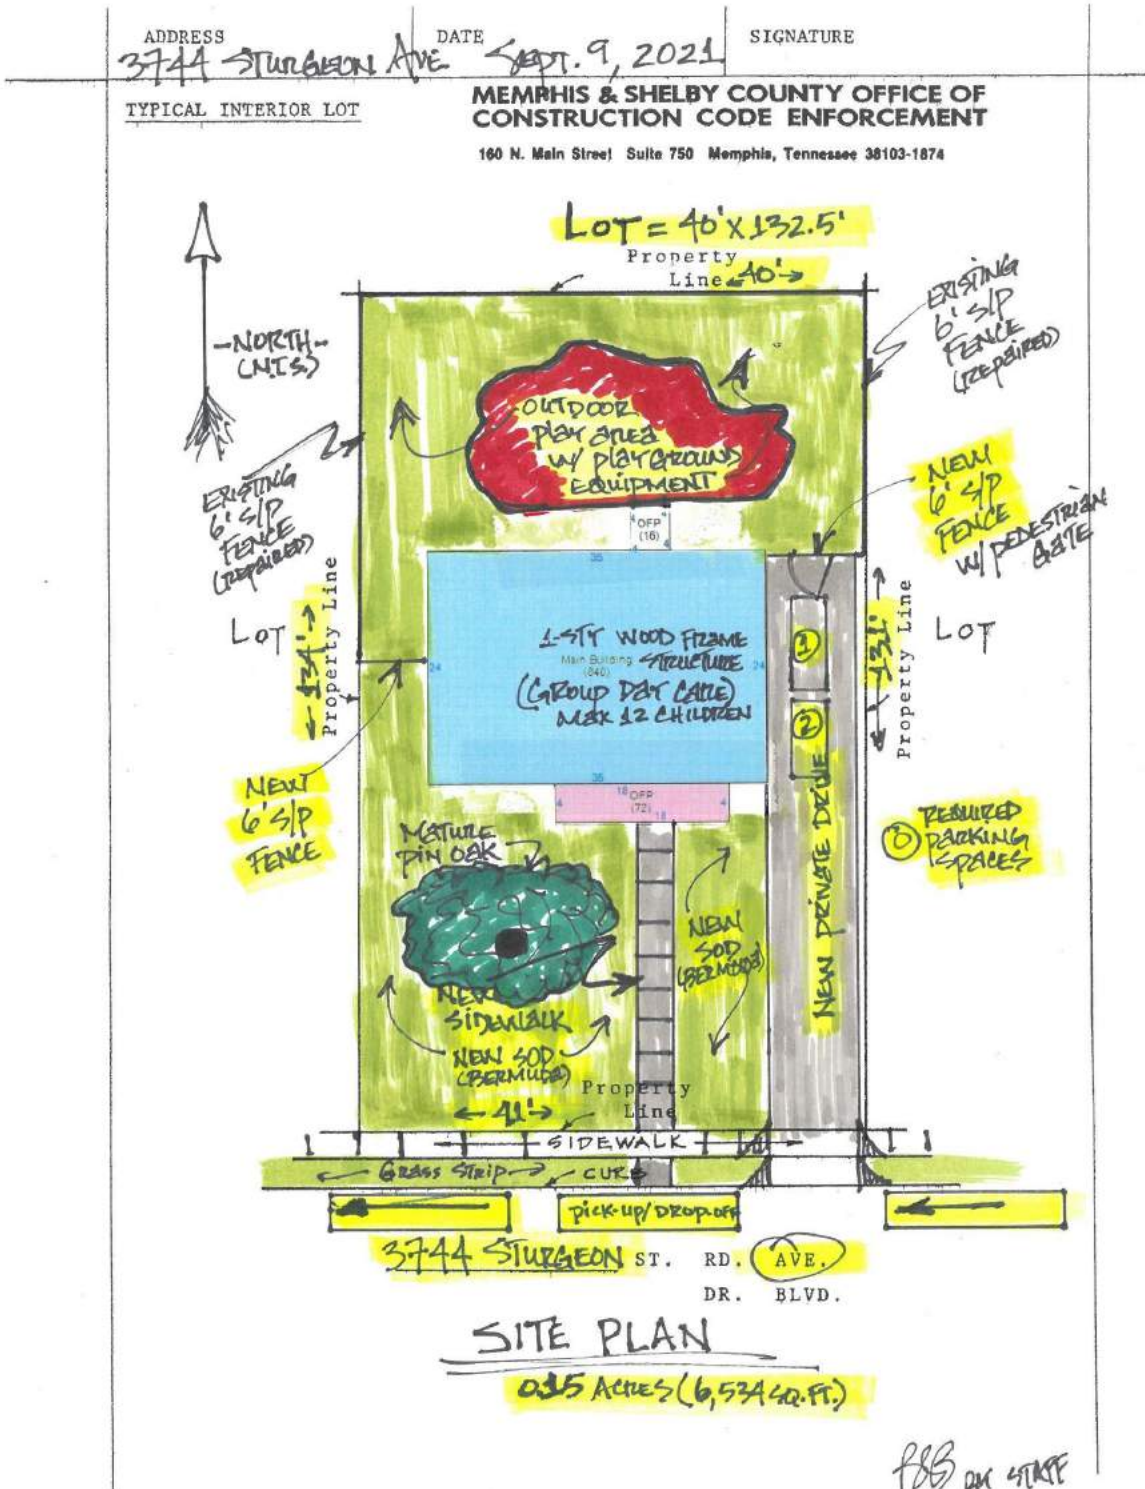 ADDRESS DATE SIGNATURE
3744 STURGEON AVE SEPT. 9, 2021
TYPICAL INTERIOR LOT
MEMPHIS & SHELBY COUNTY OFFICE OF
CONSTRUCTION CODE ENFORCEMENT
160 N. Main Street Suite 750 Memphis, Tennessee 38103-1874
LOT = 40' X 132.5'
Property
Line 40'
-NORTH-
(N.T.S.)
EXISTING
6' S/P
FENCE
(REPAIRED)
OUTDOOR
PLAY AREA
W/ PLAYGROUND
EQUIPMENT
EXISTING
6' S/P
FENCE
(REPAIRED)
NEW
6' S/P
FENCE
W/ PEDESTRIAN
GATE
4 4
OFP
(16)
4 4
35
LOT
134'
Property Line
1-STY WOOD FRAME
Main Building STRUCTURE
(840)
24 24
(GROUP DAY CARE)
MAX 12 CHILDREN
35
1
2
NEW PRIVATE DRIVE
131'
Property Line
LOT
NEW
6' S/P
FENCE
18
OFP
4 (72) 4
18
3 REQUIRED
PARKING
SPACES
MATURE
PIN OAK
NEW
SIDEWALK
NEW SOD
(BERMUDA)
NEW
SOD
(BERMUDA)
41'
Property
Line
SIDEWALK
GRASS STRIP CURB
PICK-UP/DROP-OFF
3744 STURGEON ST. RD. AVE.
DR. BLVD.
SITE PLAN
0.15 ACRES (6,534 SQ.FT.)
STAFF